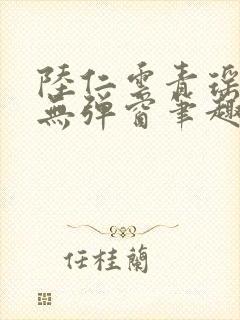 陸仁雲青瑶
無彈窗筆趣
任桂蘭